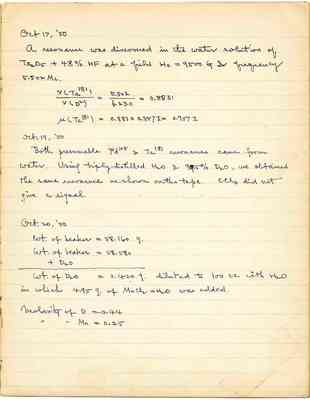 Oct 17, '50
A resonance was discovered in the water solution of
Ta2O5 + 48% HF at a field Ho = 9500 G & frequency
5.502 Mc.
ν(Ta181) / ν(D2) = 5.502 / 6.230 = 0.8831
μ(Ta181) = 0.8831 ×
Oct 19, '50
Both presumable & Ta181 resonances came from
water. Using triply-distilled H2O & 99.5% D2O, we obtained
the same resonance as shown on the tape. CCl4 did not
give a signal.
Oct 20, '50
Wt. of beaker = 58.160 g.
Wt. of beaker = 58.580
+ D2O
Wt. of D2O = 2.420 g. diluted to 100 cc with H2O
in which 4.95 g. of MnCl2·4H2O was added.
Molarity of D = 2.44
" " Mn = 0.25